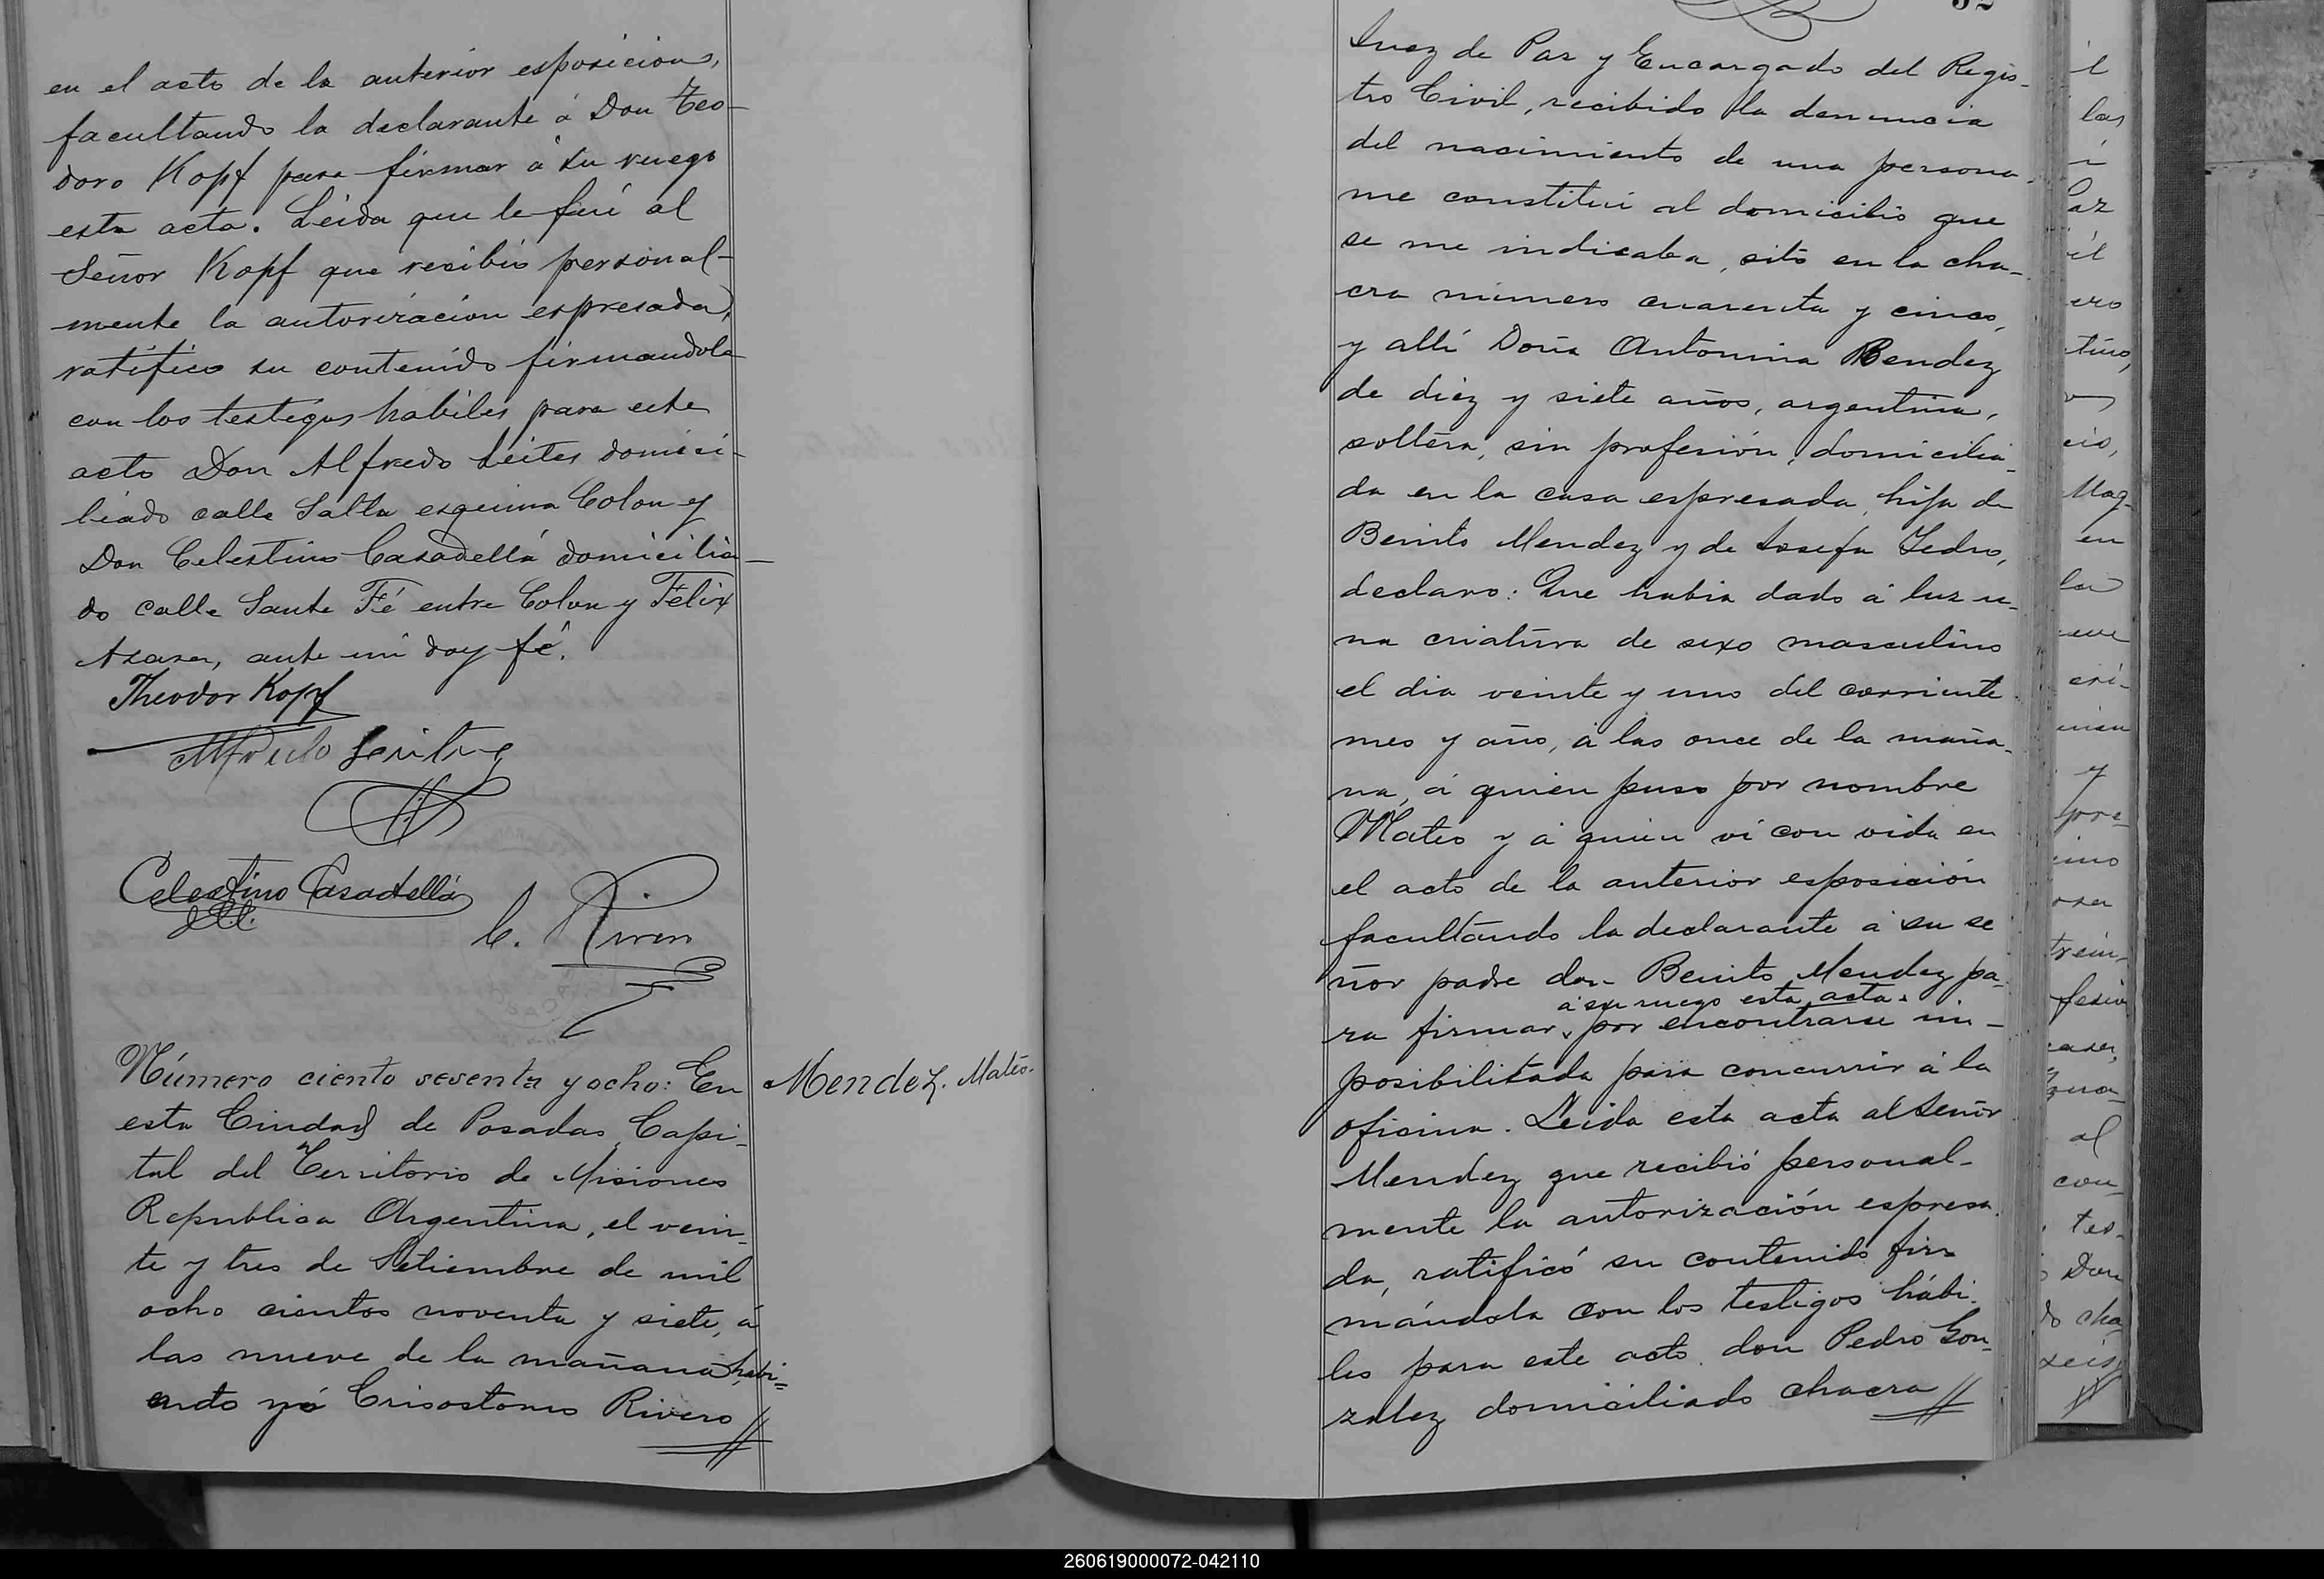 en el acto de la anterior esposicion,
facultando la declarante á Don Teo-
doro Kopf para firmar á su ruego
esta acta. Leida que le fué al
Señor Kopf que recibió personal-
mente la autorización espresada,
ratifico su contenido firmandola
con los testigos habiles para este
acto Don Alfredo Leites domici-
liado calle Salta esquina Colon y
Don Celestino Casadellá domicilia-
do calle Santa Fé entre Colon y Felix
Azara, ante mi doy fé.
Theodor Kopf
Alfredo Leites
Celestino Casadellá
C. Rivero
Número ciento sesenta y ocho: En
esta Ciudad de Posadas, Capi-
tal del Territorio de Misiones
Republica Argentina, el vein-
te y tres de Setiembre de mil
ocho cientos noventa y siete, á
las nueve de la mañana habi-
endo yó Crisostomo Rivero
Mendez. Mateo.
52
Juez de Paz y Encargado del Regis-
tro Civil, recibido la denuncia
del nacimiento de una persona
me constitui al domicilio que
se me indicaba, sito en la cha-
cra número cuarenta y cinco,
y allí Doña Antonina Bendez
de diez y siete años, argentina,
soltera, sin profesión, domicilia-
da en la casa espresada, hija de
Benito Mendez y de Josefa Ledro,
declaro: Que habia dado á luz u-
na criatura de sexo masculino
el dia veinte y uno del corriente
mes y año, á las once de la maña-
na, á quien puso por nombre
Mateo y á quien vi con vida en
el acto de la anterior esposición
facultando la declarante á su se
ñor padre don Benito Mendez pa-
á su ruego esta acta.
ra firmar, por encontrarse im-
posibilitada para concurrir á la
oficina. Leida esta acta al señor
Mendez que recibió personal-
mente la autorización espresa-
da, ratificó su contenido fir-
mándola con los testigos hábi-
les para este acto, don Pedro Gon-
zalez domiciliado chacra
260619000072-042110